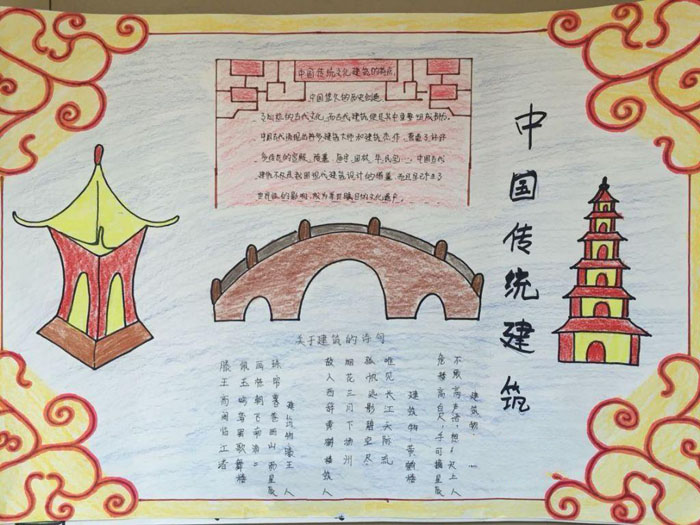 中国传统文化建筑的特点
中国悠久的历史创造
了灿烂的古代文化,而古代建筑便是其中重要组成部分。
中国古代涌现出许多建筑大师和建筑杰作,营造了许许
多传世的宫殿、陵墓、庙宇、园林、民宅……,中国古代
建筑不仅是我国现代建筑设计的借鉴,而且早已产生了
世界性的影响,成为举世瞩目的文化遗产。
中国传统建筑
关于建筑的诗句
建筑物: …
危楼高百尺,手可摘星辰
不敢高声语,恐天上人
建筑物 黄鹤楼
唯见长江天际流
孤帆远影碧空尽
烟花三月下扬州
故人西辞黄鹤楼故人
建筑物滕王
珠帘暮卷西山雨
画栋朝飞南浦云
佩玉鸣鸾罢歌舞
滕王高阁临江渚